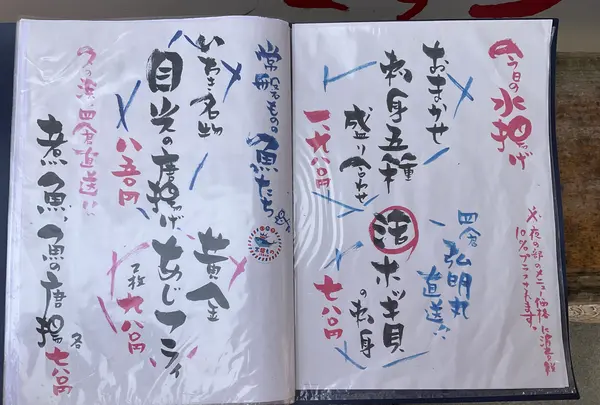 今日の水揚げ
※夜の部のメニュー価格は昼の部
10%プラスされます。
おまかせ
刺身五種
盛り合わせ
一、九八〇円
四倉
弘明丸
直送!!
活ホッキ貝
の刺身
七八〇円
常磐ものの
魚たち
いわき名物
目光の唐揚げ
八五〇円
黄金
あじフライ
2枚
九八〇円
今の浜、四倉直送!!
煮魚、魚の唐揚
各七八〇円